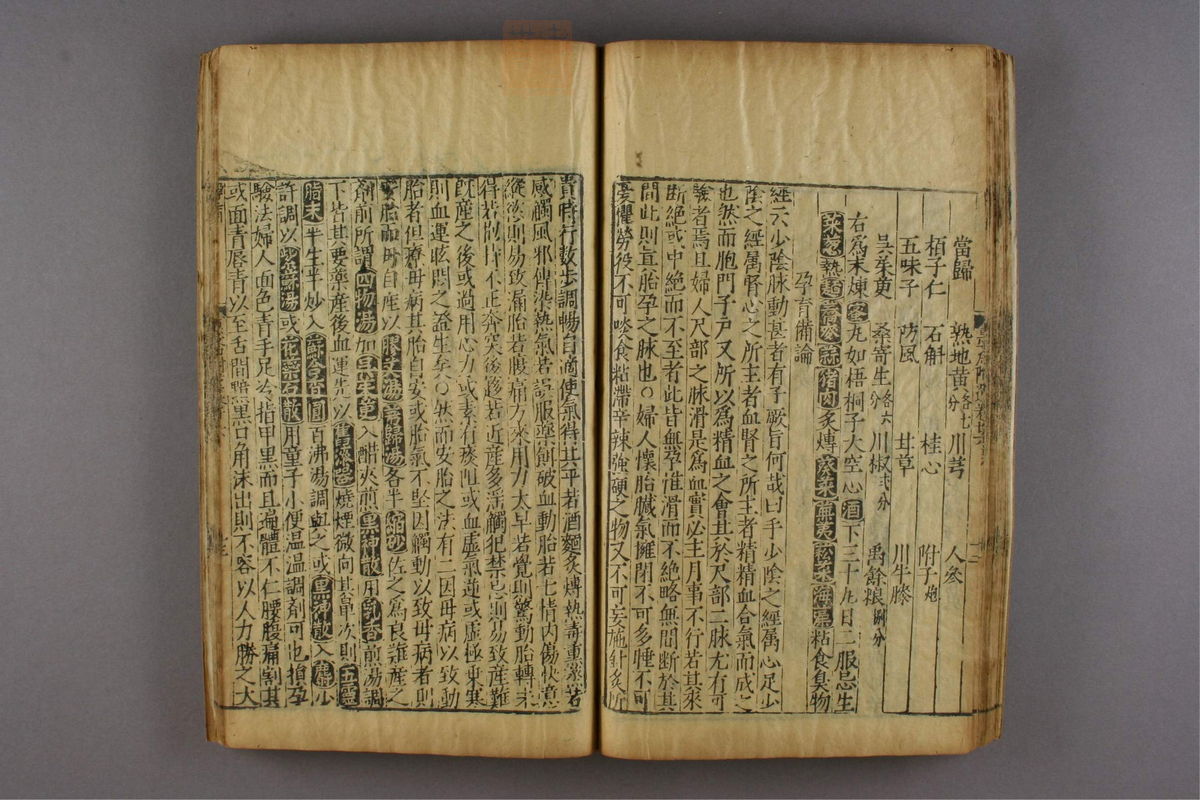 當歸 熟地黃各七分 川芎 人參
栢子仁 石斛 桂心 附子炮
五味子 防風 甘草 川牛膝
吳茱萸 桑寄生各六分 川椒 禹餘粮
右為末煉蜜丸如梧桐子大空心酒下三十丸日二服忌生
菜葱熱 蒜猪肉炙煿 菜蕪荑菘菜海 粘食臭物
孕育備論
經云少陰脉動甚者有子厥旨何哉曰手少陰之經屬心足少
陰之經屬腎心之所主者血腎之所主者精精血合氣而成之
也然而胞門子戶又所以為精血之會其於尺部二脉尤有可
驗者焉且婦人尺部之脉滑是為血實必主月事不行若其來
斷絶或中絶而不至者此皆無孕惟滑而不絶略無間斷於其
間此則真胎孕之脉也○婦人懷胎臓氣擁閉不可多睡不可
憂懼勞役不可啖食粘滯辛辣強硬之物又不可妄施針灸所
貴時行數步調暢自適使氣得其平若酒麵炙煿熱 重 若
感觸風邪傳染熱氣若誤服藥餌破血動胎若七情內傷快意
縱慾則易致漏胎若腹痛方來用力大早若覺則驚動胎轉未
得若抱持不正奔突後 若近産多淫觸犯禁忌則易致産難
既産之後或過用心力或素有痰阻或血虛氣逆或虛極東寒
則血運眩悶之證生矣○然而安胎之法有二因母病以致動
胎者但療母病其胎自安或胎氣不堅因觸動以致母病者則
安胎而母自産以膠艾湯當歸湯各半縮砂佐之為良難産之
劑前所謂四物湯加 入醋火煎黑神散用乳香煎湯調
下皆其要藥産後血運先以 燒煙微向其鼻次則五靈
脂末半生半炒入 圓百沸湯調 之或黑神散入麝少
許調以 湯或花蘂石散用童子小便温温調劑可也損孕
驗法婦人面色青手足冷指甲黑而且遍體不仁腰腹痛割甚
或面青唇青以至舌間黯黑口角沫出則不容以人力勝之大